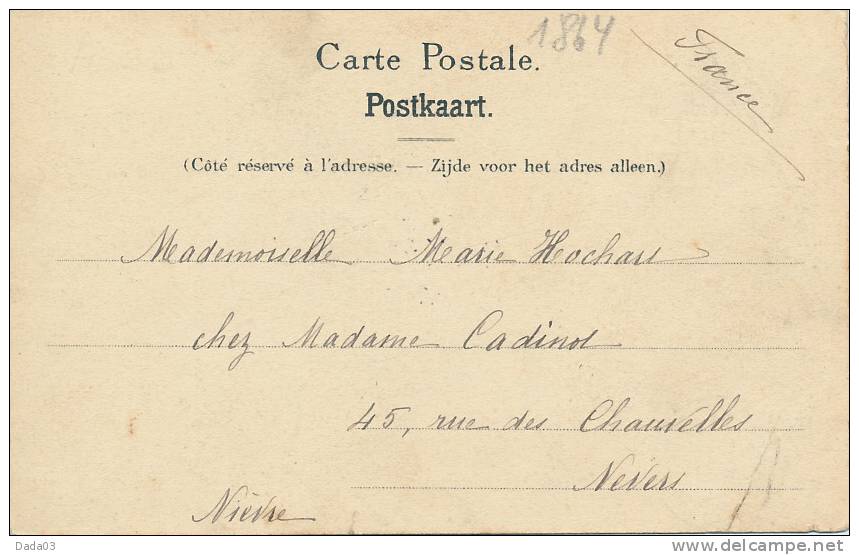 1864
France
Carte Postale.
Postkaart.
(Côté réservé à l'adresse. — Zijde voor het adres alleen.)
Mademoiselle Marie Hochart
chez Madame Cadinot
45, rue des Chauvelles
Nevers
Nièvre
Dada03
delcampe.net